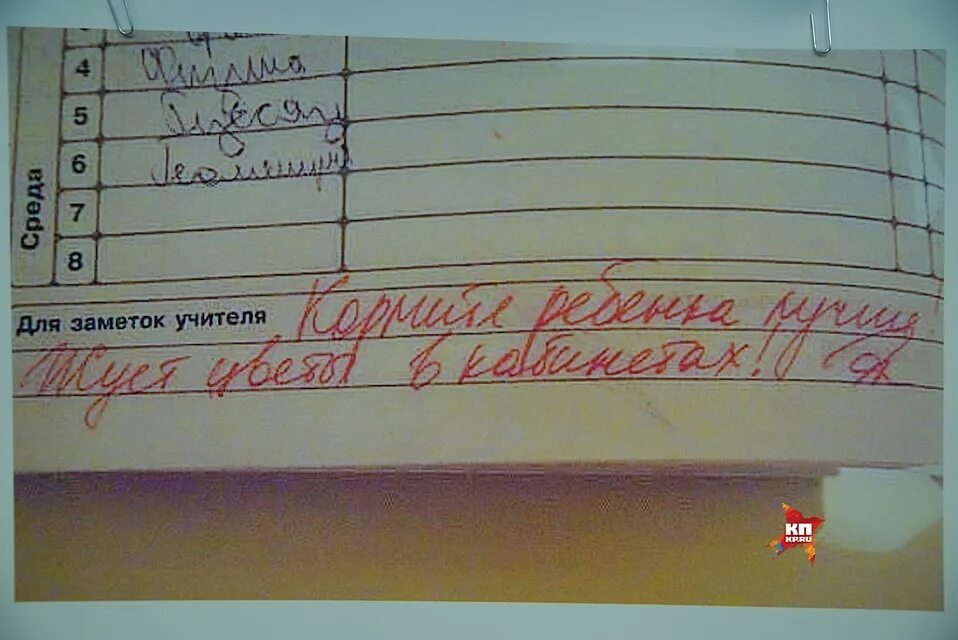 4 Физика
5
6 Геометри
7
8
Среда
Для заметок учителя Кормите ребенка лучше
Жует цветы в кабинетах!
КП
KP.RU